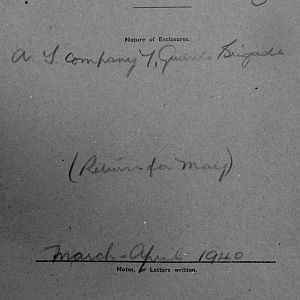 Nature of Enclosures.
A. T. Company 7, Guards Brigade
(Return for May)
March - April 1940
Notes, or Letters written.